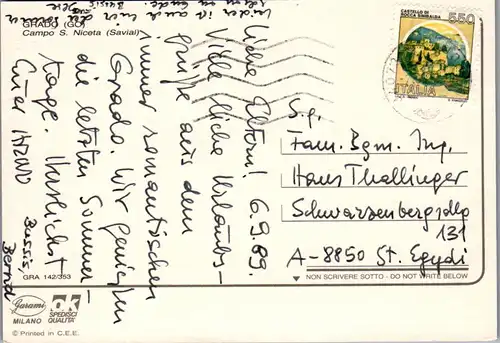 GRADO (GO)
Campo S. Niceta (Savial)
6.9.89.
Liebe Eltern!
Viele liebe Urlaubs-
grüße aus dem
immer romantischen
Grado. Wir genießen
die letzten Sommer-
tage. Herzlichst
Euer ARNO
Bussis,
Bernd
CASTELLO DI
ROCCA SINIBALDA
550
ITALIA
S.g.
Fam. Bgm. Ing.
Hans Thallinger
Schwarzenbergsdlg
131
A-8850 St. Egydi
NON SCRIVERE SOTTO - DO NOT WRITE BELOW
GRA 142/353
Garami
MILANO
OK
SPEDISCI
QUALITA'
© Printed in C.E.E.